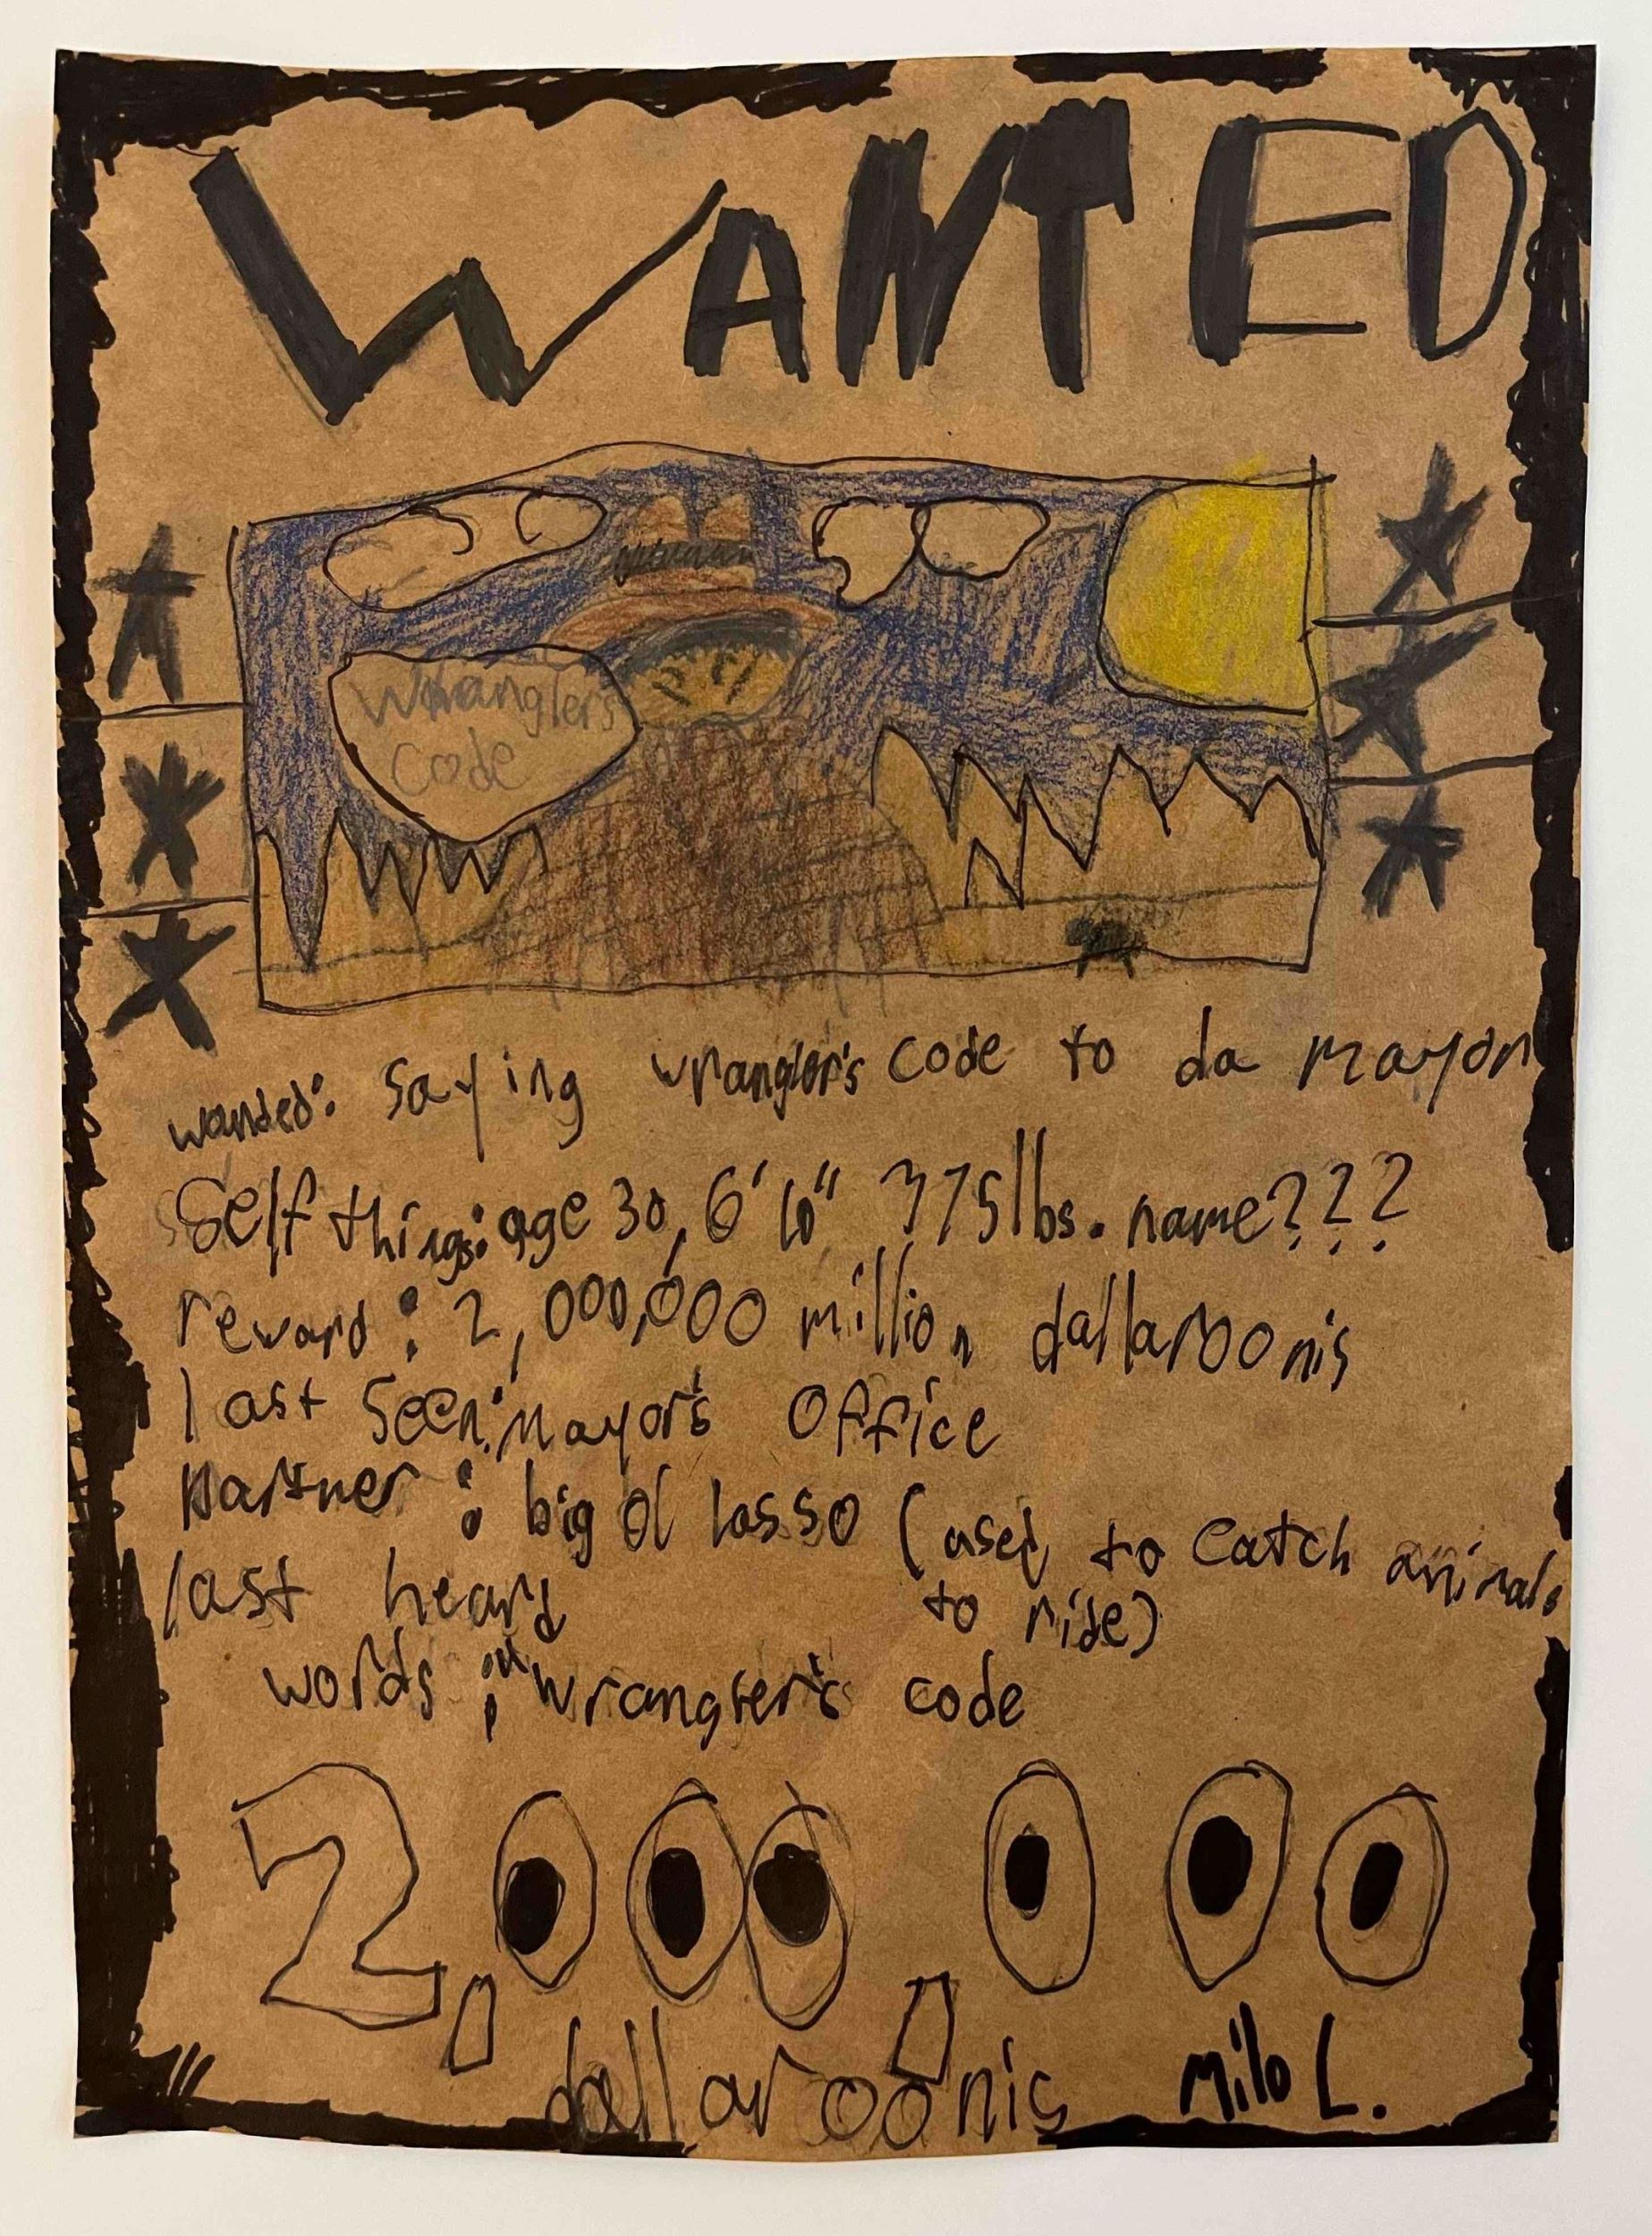 WANTED
Wrangler's
Code
wanded: Saying wrangler's code to da mayor
Self things: age 30, 6' 10" 375lbs. name???
reward: 2,000,000 million dallaroonis
last seen: Mayor's Office
Partner: big ol lasso (used to catch animals
to ride)
last heard
words: "wrangler's code
2,000,000
dallaroonis
Milo L.